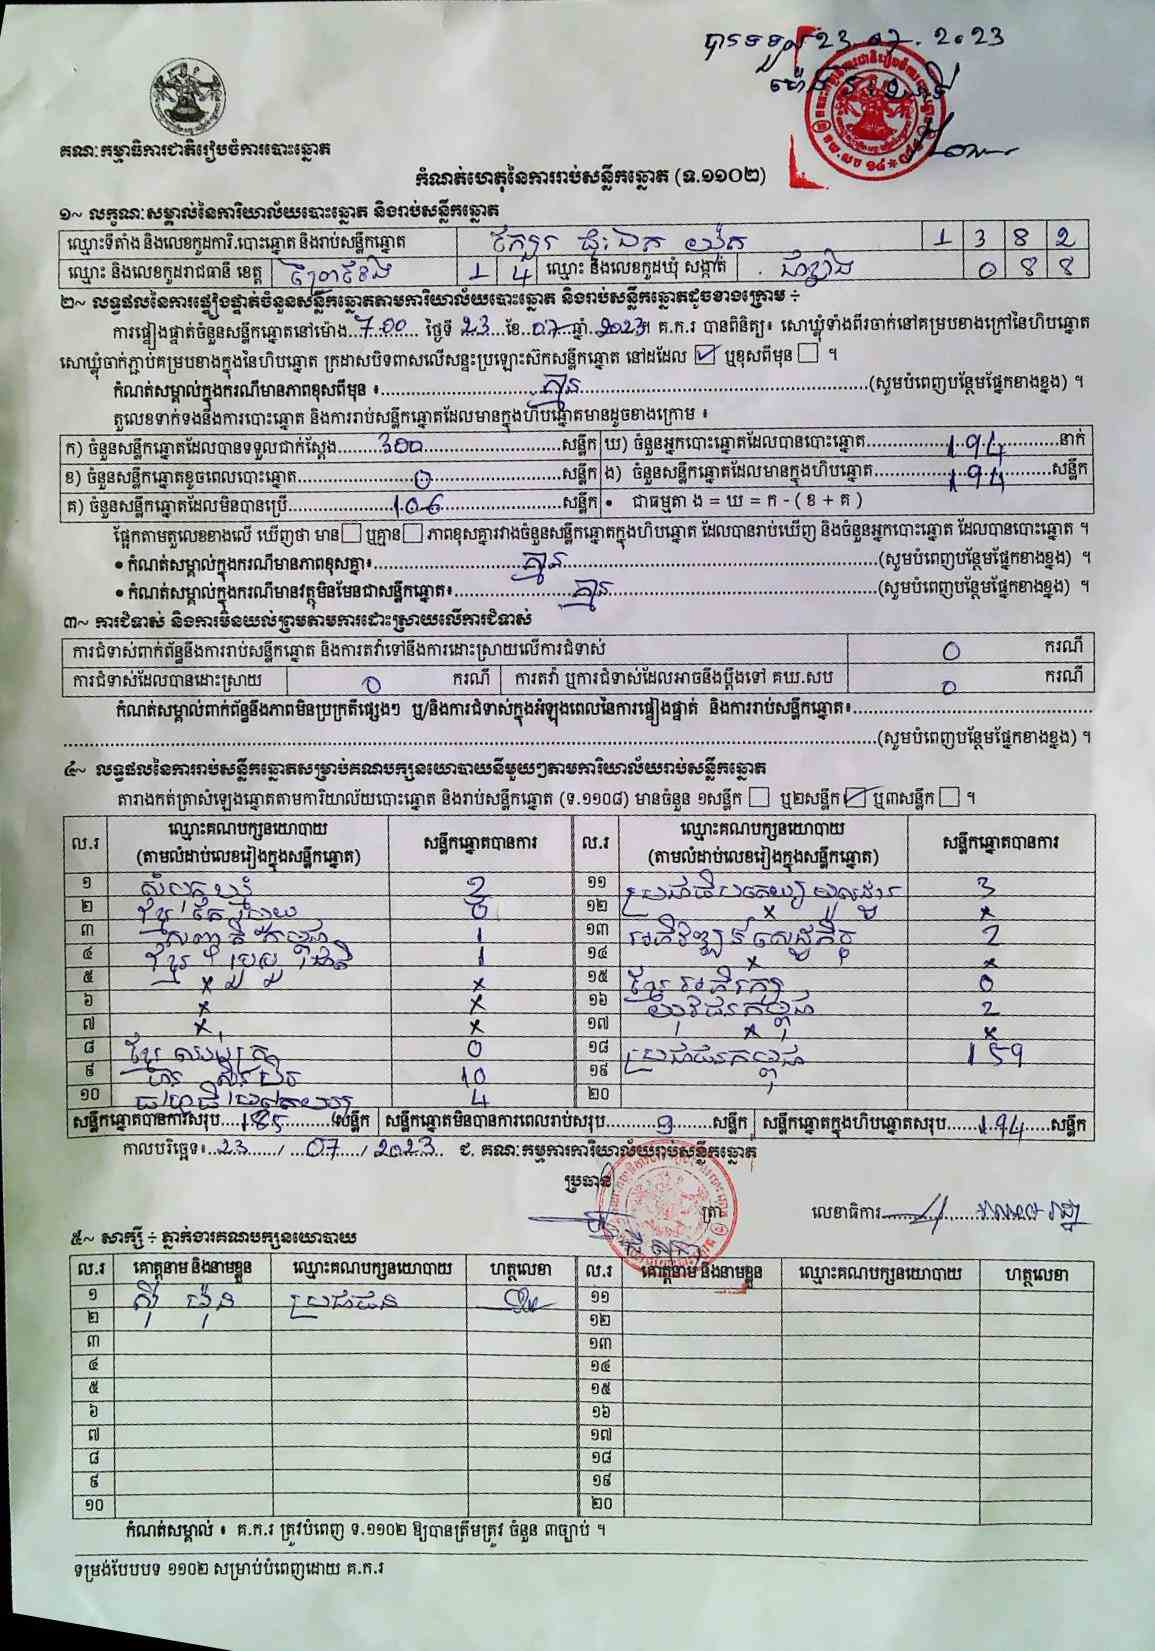 បានទទួល 23.07.2023
គណៈកម្មាធិការជាតិរៀបចំការបោះឆ្នោត
កំណត់ហេតុនៃការរាប់សន្លឹកឆ្នោត (ទ.១១០២)
១~ លក្ខណៈសម្គាល់នៃការិយាល័យបោះឆ្នោត និងរាប់សន្លឹកឆ្នោត
ឈ្មោះទីតាំង និងលេខកូដការិ.បោះឆ្នោត និងរាប់សន្លឹកឆ្នោត 1 3 8 2
ឈ្មោះ និងលេខកូដរាជធានី ខេត្ត ព្រៃវែង 1 4 ឈ្មោះ និងលេខកូដឃុំ សង្កាត់ 0 8 8
២~ លទ្ធផលនៃការផ្ទៀងផ្ទាត់ចំនួនសន្លឹកឆ្នោតតាមការិយាល័យបោះឆ្នោត និងរាប់សន្លឹកឆ្នោតដូចខាងក្រោម ÷
ការផ្ទៀងផ្ទាត់ចំនួនសន្លឹកឆ្នោតនៅម៉ោង..7.00...... ថ្ងៃទី 23...ខែ..07...ឆ្នាំ..2023។ គ.ក.រ បានពិនិត្យ៖ សោឃ្លុំទាំងពីរចាក់នៅគម្របខាងក្រៅនៃហិបឆ្នោត
សោឃ្លុំចាក់ភ្ជាប់គម្របខាងក្នុងនៃហិបឆ្នោត ក្រដាសបិទពាសលើសន្ទះប្រឡោះស៊កសន្លឹកឆ្នោត នៅដដែល ☑ ឬខុសពីមុន ☐ ។
កំណត់សម្គាល់ក្នុងករណីមានភាពខុសពីមុន ៖..........គ្មាន..........(សូមបំពេញបន្ថែមផ្នែកខាងខ្នង) ។
តួលេខទាក់ទងនឹងការបោះឆ្នោត និងការរាប់សន្លឹកឆ្នោតដែលមានក្នុងហិបឆ្នោតមានដូចខាងក្រោម ៖
ក) ចំនួនសន្លឹកឆ្នោតដែលបានទទួលជាក់ស្តែង........300..........សន្លឹក ឃ) ចំនួនអ្នកបោះឆ្នោតដែលបានបោះឆ្នោត..........194..........នាក់
ខ) ចំនួនសន្លឹកឆ្នោតខូចពេលបោះឆ្នោត..........0..........សន្លឹក ង) ចំនួនសន្លឹកឆ្នោតដែលមានក្នុងហិបឆ្នោត..........194..........សន្លឹក
គ) ចំនួនសន្លឹកឆ្នោតដែលមិនបានប្រើ..........106..........សន្លឹក • ជាធម្មតា ង = ឃ = ក - ( ខ + គ )
ផ្អែកតាមតួលេខខាងលើ ឃើញថា មាន ☐ ឬគ្មាន ☐ ភាពខុសគ្នារវាងចំនួនសន្លឹកឆ្នោតក្នុងហិបឆ្នោត ដែលបានរាប់ឃើញ និងចំនួនអ្នកបោះឆ្នោត ដែលបានបោះឆ្នោត ។
• កំណត់សម្គាល់ក្នុងករណីមានភាពខុសគ្នា៖..........គ្មាន..........(សូមបំពេញបន្ថែមផ្នែកខាងខ្នង) ។
• កំណត់សម្គាល់ក្នុងករណីមានវត្ថុមិនមែនជាសន្លឹកឆ្នោត៖..........គ្មាន..........(សូមបំពេញបន្ថែមផ្នែកខាងខ្នង) ។
៣~ ការជំទាស់ និងការមិនយល់ព្រមតាមការដោះស្រាយលើការជំទាស់
ការជំទាស់ពាក់ព័ន្ធនឹងការរាប់សន្លឹកឆ្នោត និងការតវ៉ាទៅនឹងការដោះស្រាយលើការជំទាស់ 0 ករណី
ការជំទាស់ដែលបានដោះស្រាយ 0 ករណី ការតវ៉ា ឬការជំទាស់ដែលអាចនឹងប្តឹងទៅ គឃ.សប 0 ករណី
កំណត់សម្គាល់ពាក់ព័ន្ធនឹងភាពមិនប្រក្រតីផ្សេងៗ ឬ/និងការជំទាស់ក្នុងអំឡុងពេលនៃការផ្ទៀងផ្ទាត់ និងការរាប់សន្លឹកឆ្នោត៖..........
..........(សូមបំពេញបន្ថែមផ្នែកខាងខ្នង) ។
៤~ លទ្ធផលនៃការរាប់សន្លឹកឆ្នោតសម្រាប់គណបក្សនយោបាយនីមួយៗតាមការិយាល័យរាប់សន្លឹកឆ្នោត
តារាងកត់ត្រាសំឡេងឆ្នោតតាមការិយាល័យបោះឆ្នោត និងរាប់សន្លឹកឆ្នោត (ទ.១១០៨) មានចំនួន ១សន្លឹក ☐ ឬ២សន្លឹក ☑ ឬ៣សន្លឹក ☐ ។
ល.រ ឈ្មោះគណបក្សនយោបាយ (តាមលំដាប់លេខរៀងក្នុងសន្លឹកឆ្នោត) សន្លឹកឆ្នោតបានការ ល.រ ឈ្មោះគណបក្សនយោបាយ (តាមលំដាប់លេខរៀងក្នុងសន្លឹកឆ្នោត) សន្លឹកឆ្នោតបានការ
១ សំបុកឃ្មុំ 2 ១១ ប្រជាធិបតេយ្យមូលដ្ឋាន 3
២ 0 ១២ x x
៣ សញ្ជាតិកម្ពុជា 1 ១៣ អភិវឌ្ឍន៍សេដ្ឋកិច្ច 2
៤ ខ្មែររួបរួមជាតិ 1 ១៤ x x
៥ x x ១៥ ខ្មែរអភិរក្ស 0
៦ x x ១៦ យុវជនកម្ពុជា 2
៧ x x ១៧ x x
៨ ខ្មែរឈប់ក្រ 0 ១៨ ប្រជាជនកម្ពុជា 159
៩ ហ៊្វុនស៊ិនប៉ិច 10 ១៩
១០ 4 ២០
សន្លឹកឆ្នោតបានការសរុប....185..........សន្លឹក សន្លឹកឆ្នោតមិនបានការពេលរាប់សរុប..........9......សន្លឹក សន្លឹកឆ្នោតក្នុងហិបឆ្នោតសរុប......194....សន្លឹក
កាលបរិច្ឆេទ៖..23...../...07..../..2023.. ជ. គណៈកម្មការការិយាល័យរាប់សន្លឹកឆ្នោត
ប្រធាន
ត្រា
លេខាធិការ
៥~ សាក្សី ÷ ភ្នាក់ងារគណបក្សនយោបាយ
ល.រ គោត្តនាម និងនាមខ្លួន ឈ្មោះគណបក្សនយោបាយ ហត្ថលេខា ល.រ គោត្តនាម និងនាមខ្លួន ឈ្មោះគណបក្សនយោបាយ ហត្ថលេខា
១ ប្រជាជន ១១
២ ១២
៣ ១៣
៤ ១៤
៥ ១៥
៦ ១៦
៧ ១៧
៨ ១៨
៩ ១៩
១០ ២០
កំណត់សម្គាល់ ៖ គ.ក.រ ត្រូវបំពេញ ទ.១១០២ ឱ្យបានត្រឹមត្រូវ ចំនួន ៣ច្បាប់ ។
ទម្រង់បែបបទ ១១០២ សម្រាប់បំពេញដោយ គ.ក.រ